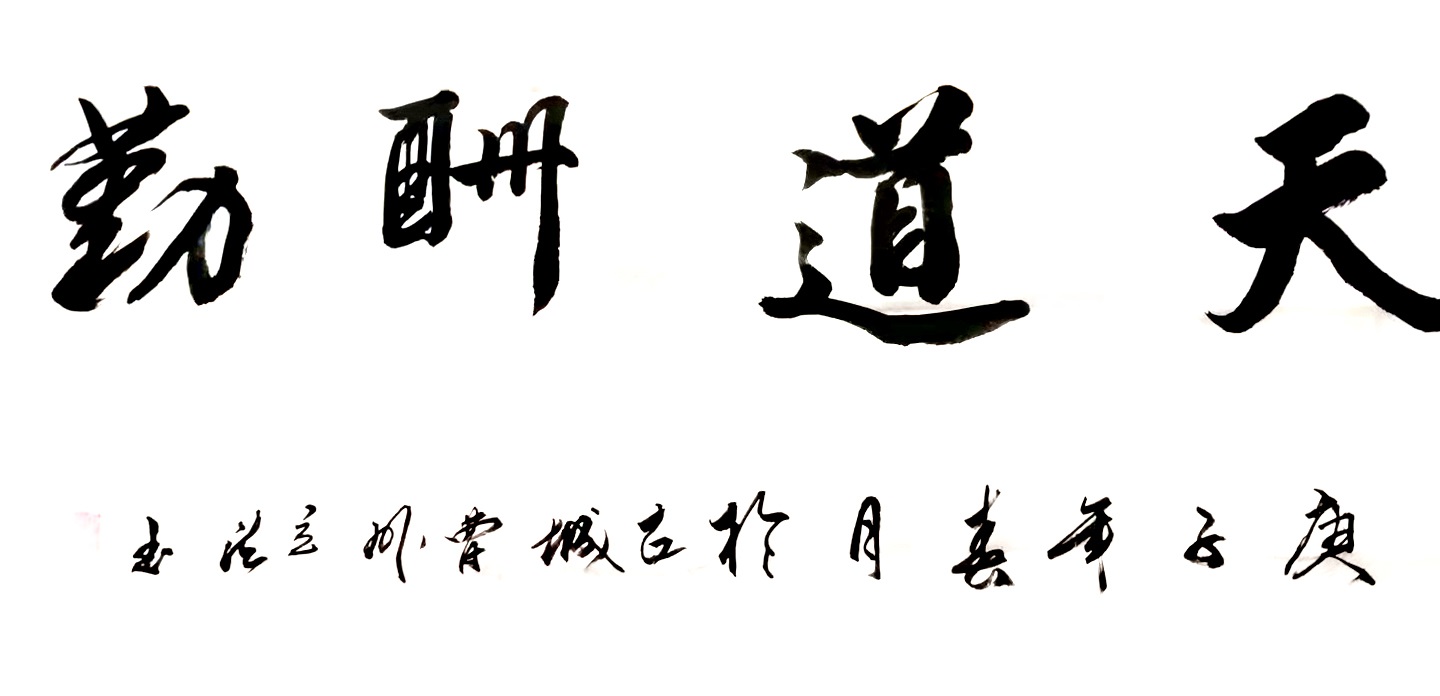 天道酬勤
庚子年春月於古城曹州立法书